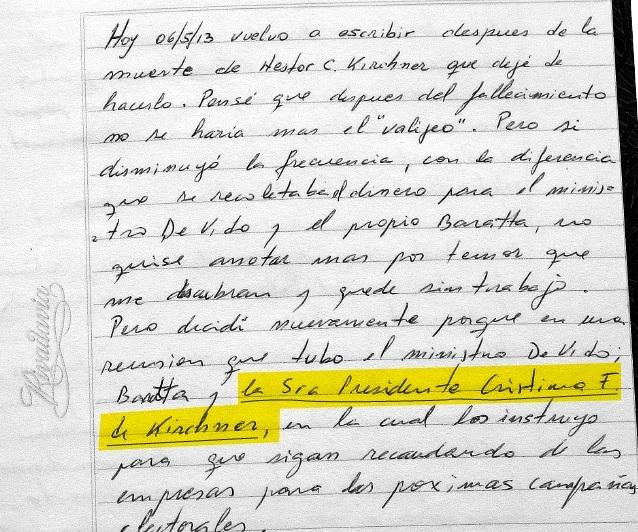 Hoy 06/5/13 vuelvo a escribir despues de la
muerte de Nestor C. Kirchner que dejé de
hacerlo. Pensé que despues del fallecimiento
no se haria mas el "valijeo". Pero si
disminuyó la frecuencia, con la diferencia
que se recoletaba el dinero para el minis-
tro De Vido y el propio Baratta, no
quise anotar mas por temor que
me descubran y quede sin trabajo.
Pero decidí nuevamente porque en una
reunion que tubo el ministro De Vido,
Baratta y la Sra Presidente Cristina F.
de Kirchner, en la cual los instruyo
para que sigan recaudando de las
empresas para las proximas campañas
electorales.
Rivadavia